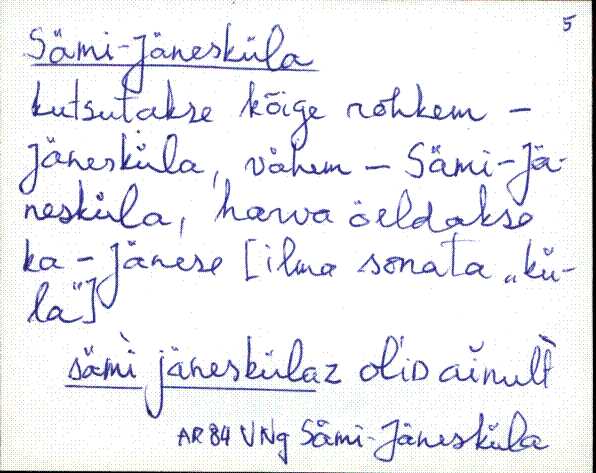 5
Sämi-Jänesküla
kutsutakse kõige rohkem –
Jänesküla, vähem – Sämi-Jä-
nesküla, harva öeldakse
ka – Jänese [ilma sõnata „kü-
la"]
sämì jäneskülaz
AR 84 VNg Sämi-Jänesküla